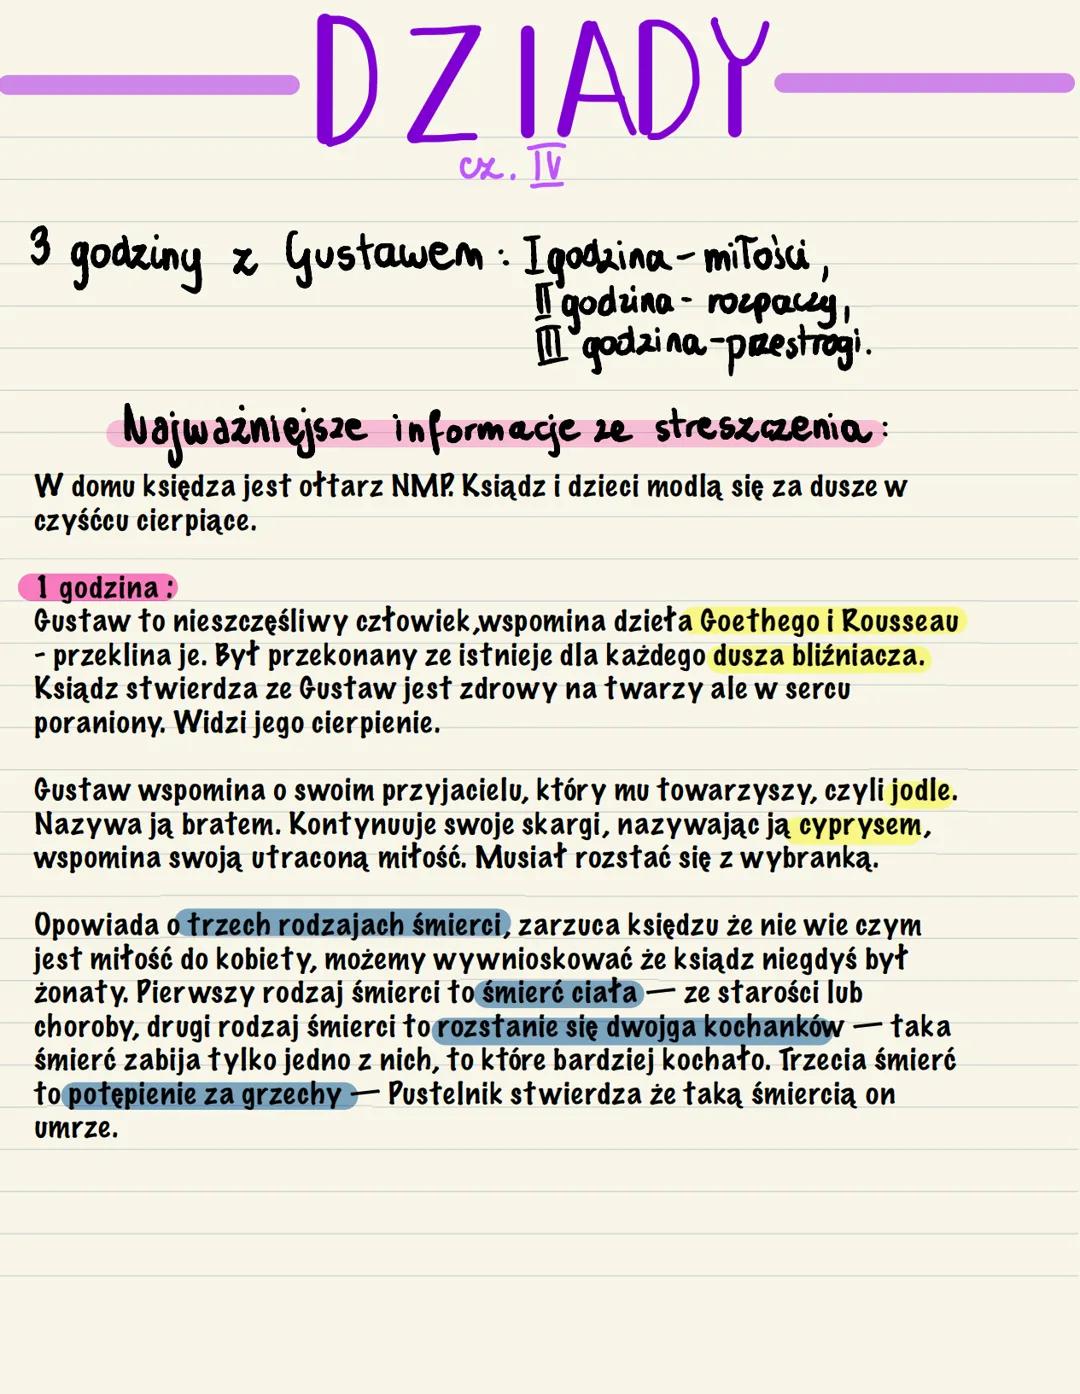 DZIADY
cz. IV
3 godziny z Gustawem: I godzina - miłości,
II godzina - rozpaczy,
III godzina - przestrogi.
Najważniejsze informacje ze streszczenia:
W domu księdza jest ołtarz NMP. Ksiądz i dzieci modlą się za dusze w
czyśćcu cierpiące.
1 godzina:
Gustaw to nieszczęśliwy człowiek,wspomina dzieła Goethego i Rousseau
- przeklina je. Był przekonany ze istnieje dla każdego dusza bliźniacza.
Ksiądz stwierdza ze Gustaw jest zdrowy na twarzy ale w sercu
poraniony. Widzi jego cierpienie.
Gustaw wspomina o swoim przyjacielu, który mu towarzyszy, czyli jodle.
Nazywa ją bratem. Kontynuuje swoje skargi, nazywając ją cyprysem,
wspomina swoją utraconą miłość. Musiał rozstać się z wybranką.
Opowiada o trzech rodzajach śmierci, zarzuca księdzu że nie wie czym
jest miłość do kobiety, możemy wywnioskować że ksiądz niegdyś był
żonaty. Pierwszy rodzaj śmierci to śmierć ciała — ze starości lub
choroby, drugi rodzaj śmierci to rozstanie się dwojga kochanków — taka
śmierć zabija tylko jedno z nich, to które bardziej kochało. Trzecia śmierć
to potępienie za grzechy — Pustelnik stwierdza że taką śmiercią on
umrze.